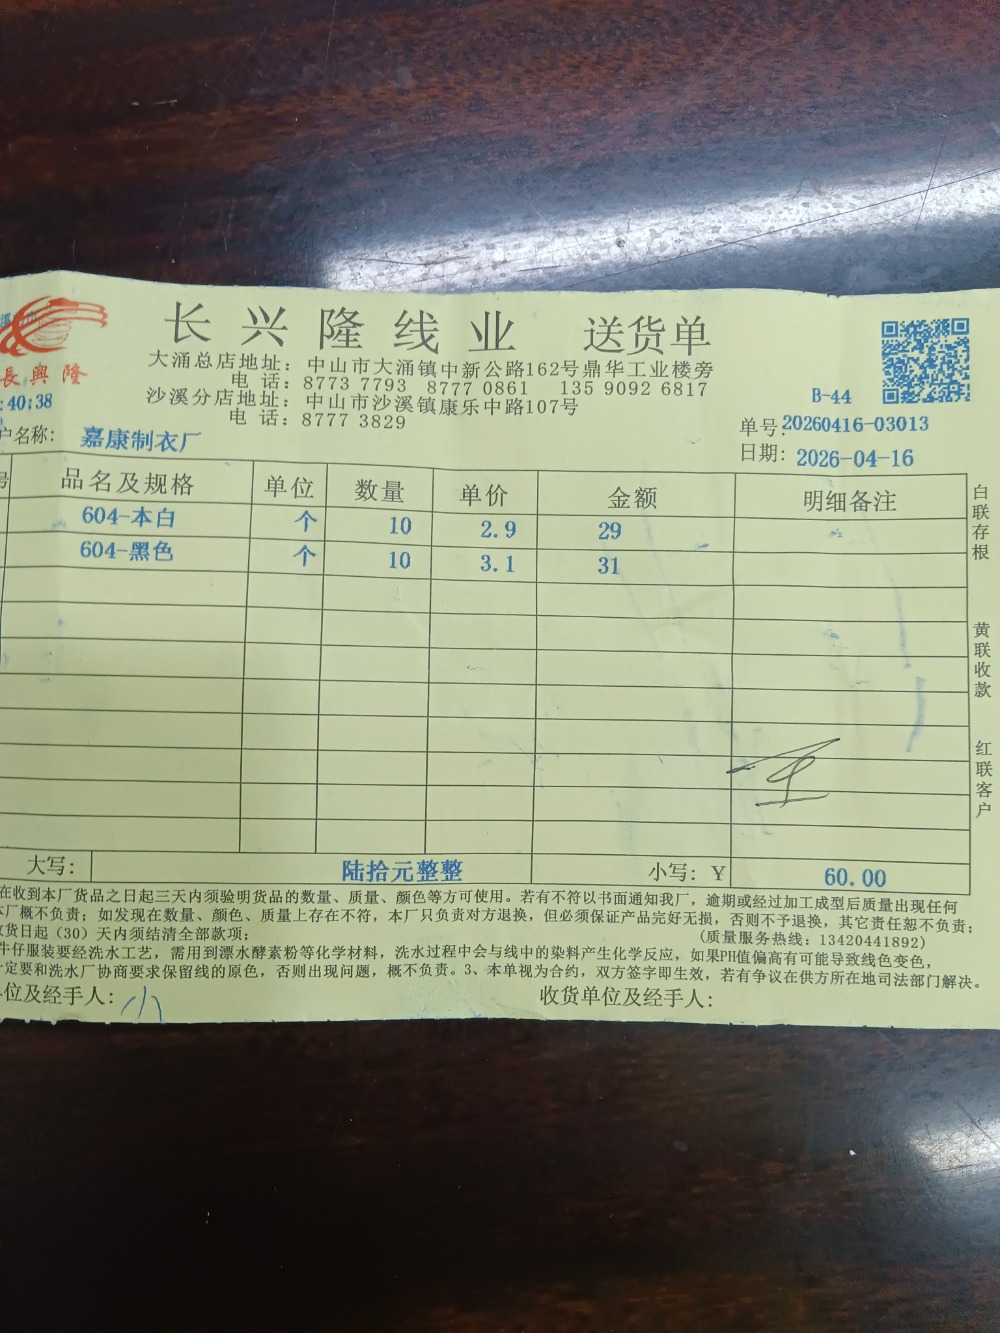 長興隆
:40:38
长兴隆线业 送货单
大涌总店地址：中山市大涌镇中新公路162号鼎华工业楼旁
电 话：8773 7793 8777 0861 135 9092 6817
沙溪分店地址：中山市沙溪镇康乐中路107号
电 话：8777 3829
B-44
户名称：嘉康制衣厂
单号：20260416-03013
日期：2026-04-16
号 品名及规格 单位 数量 单价 金额 明细备注
604-本白 个 10 2.9 29
604-黑色 个 10 3.1 31
白联存根
黄联收款
红联客户
大写：陆拾元整整 小写：Y 60.00
在收到本厂货品之日起三天内须验明货品的数量、质量、颜色等方可使用。若有不符以书面通知我厂，逾期或经过加工成型后质量出现任何
本厂概不负责；如发现在数量、颜色、质量上存在不符，本厂只负责对方退换，但必须保证产品完好无损，否则不予退换，其它责任恕不负责；
收货日起（30）天内须结清全部款项； （质量服务热线：13420441892）
牛仔服装要经洗水工艺，需用到漂水酵素粉等化学材料，洗水过程中会与线中的染料产生化学反应，如果PH值偏高有可能导致线色变色，
一定要和洗水厂协商要求保留线的原色，否则出现问题，概不负责。3、本单视为合约，双方签字即生效，若有争议在供方所在地司法部门解决。
单位及经手人：小 收货单位及经手人：